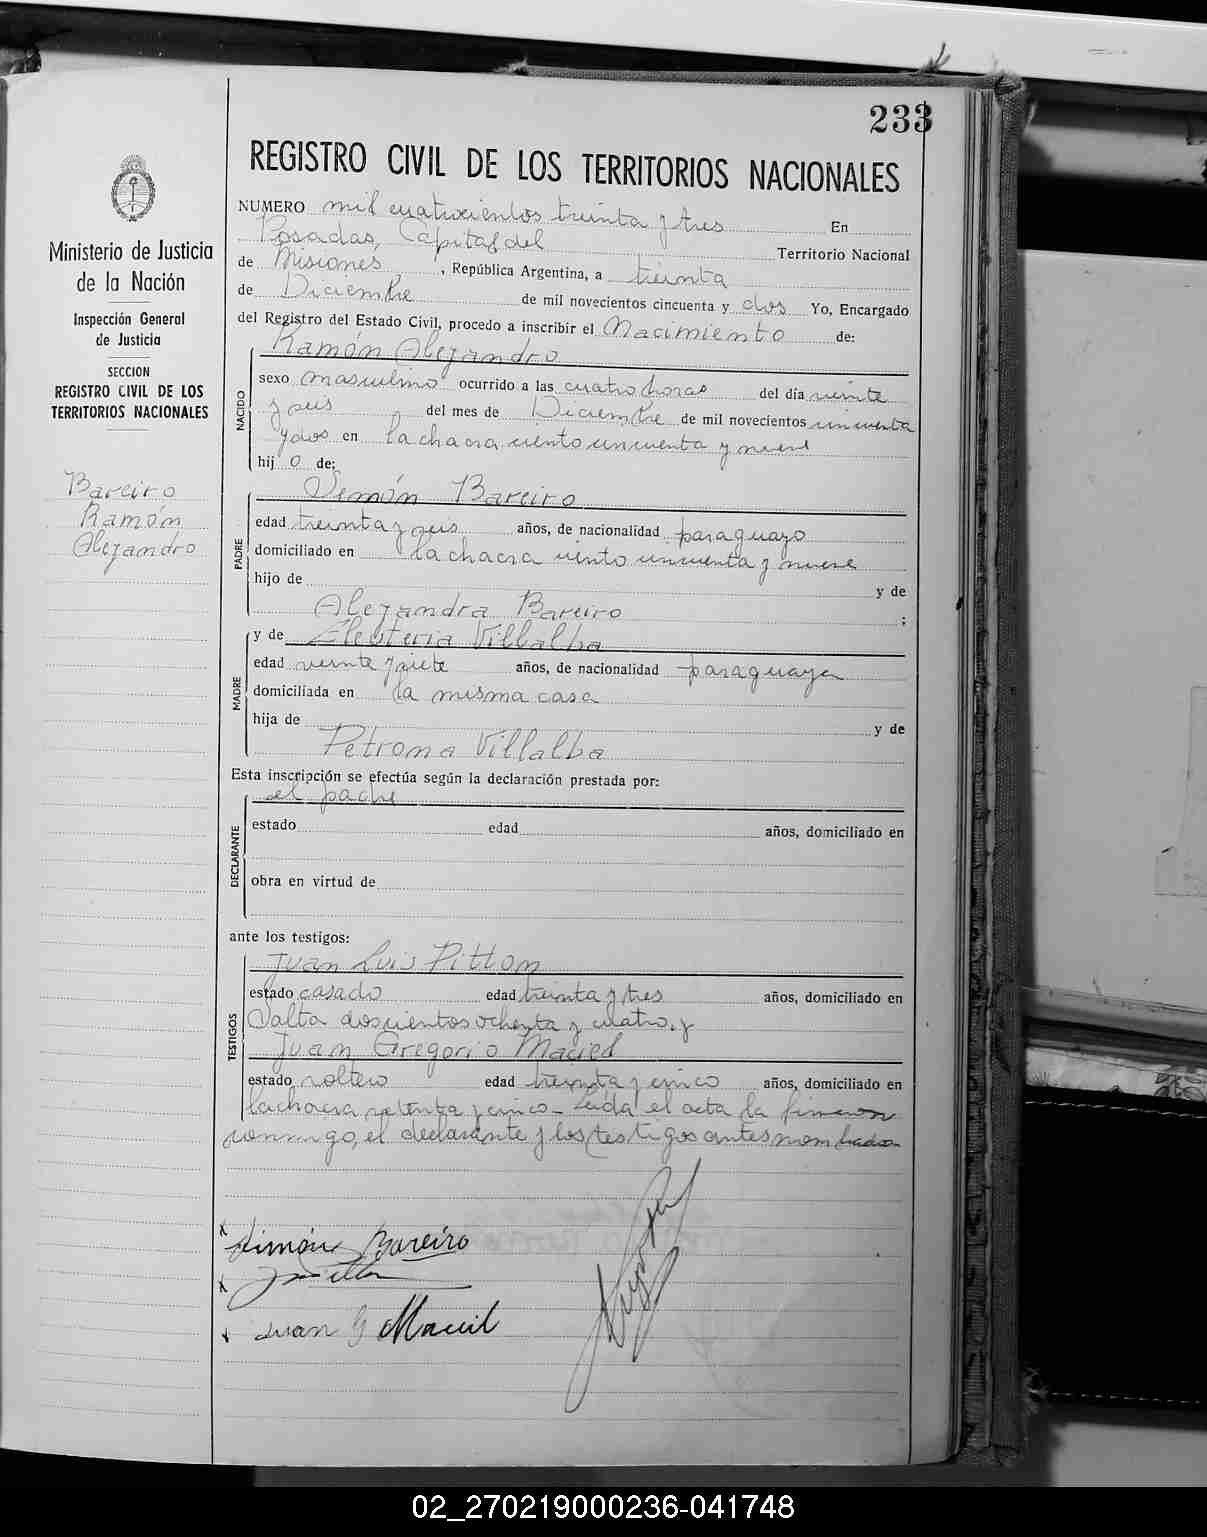 233
REGISTRO CIVIL DE LOS TERRITORIOS NACIONALES
Ministerio de Justicia
de la Nación
Inspección General
de Justicia
SECCION
REGISTRO CIVIL DE LOS
TERRITORIOS NACIONALES
Bareiro
Ramón
Alejandro
NUMERO mil cuatrocientos treinta y tres En
Posadas, Capital del Territorio Nacional
de Misiones, República Argentina, a treinta
de Diciembre de mil novecientos cincuenta y dos Yo, Encargado
del Registro del Estado Civil, procedo a inscribir el Nacimiento de:
Ramón Alejandro
NACIDO
sexo masculino ocurrido a las cuatro horas del día veinte
y seis del mes de Diciembre de mil novecientos cincuenta
y dos en la chacra ciento cincuenta y nueve
hijo de:
Simón Bareiro
PADRE
edad treinta y seis años, de nacionalidad paraguayo
domiciliado en la chacra ciento cincuenta y nueve
hijo de y de
Alejandra Bareiro ;
y de Eleuteria Villalba
MADRE
edad veinte y siete años, de nacionalidad paraguaya
domiciliada en la misma casa
hija de y de
Petrona Villalba
Esta inscripción se efectúa según la declaración prestada por:
el padre
DECLARANTE
estado edad años, domiciliado en
obra en virtud de
ante los testigos:
Juan Luis Pitton
TESTIGOS
estado casado edad treinta y tres años, domiciliado en
Salta doscientos ochenta y cuatro, y
Juan Gregorio Maciel
estado soltero edad treinta y cinco años, domiciliado en
la chacra setenta y cinco - Leida el acta la firmaron
conmigo, el declarante y los testigos antes nombrados
Simón Bareiro
Juan G Maciel
02_270219000236-041748